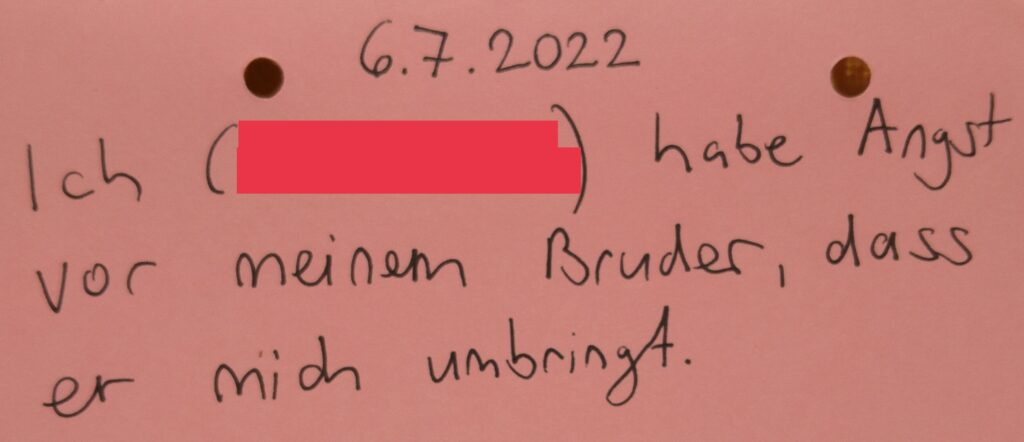 6.7.2022
Ich () habe Angst
vor meinem Bruder, dass
er mich umbringt.